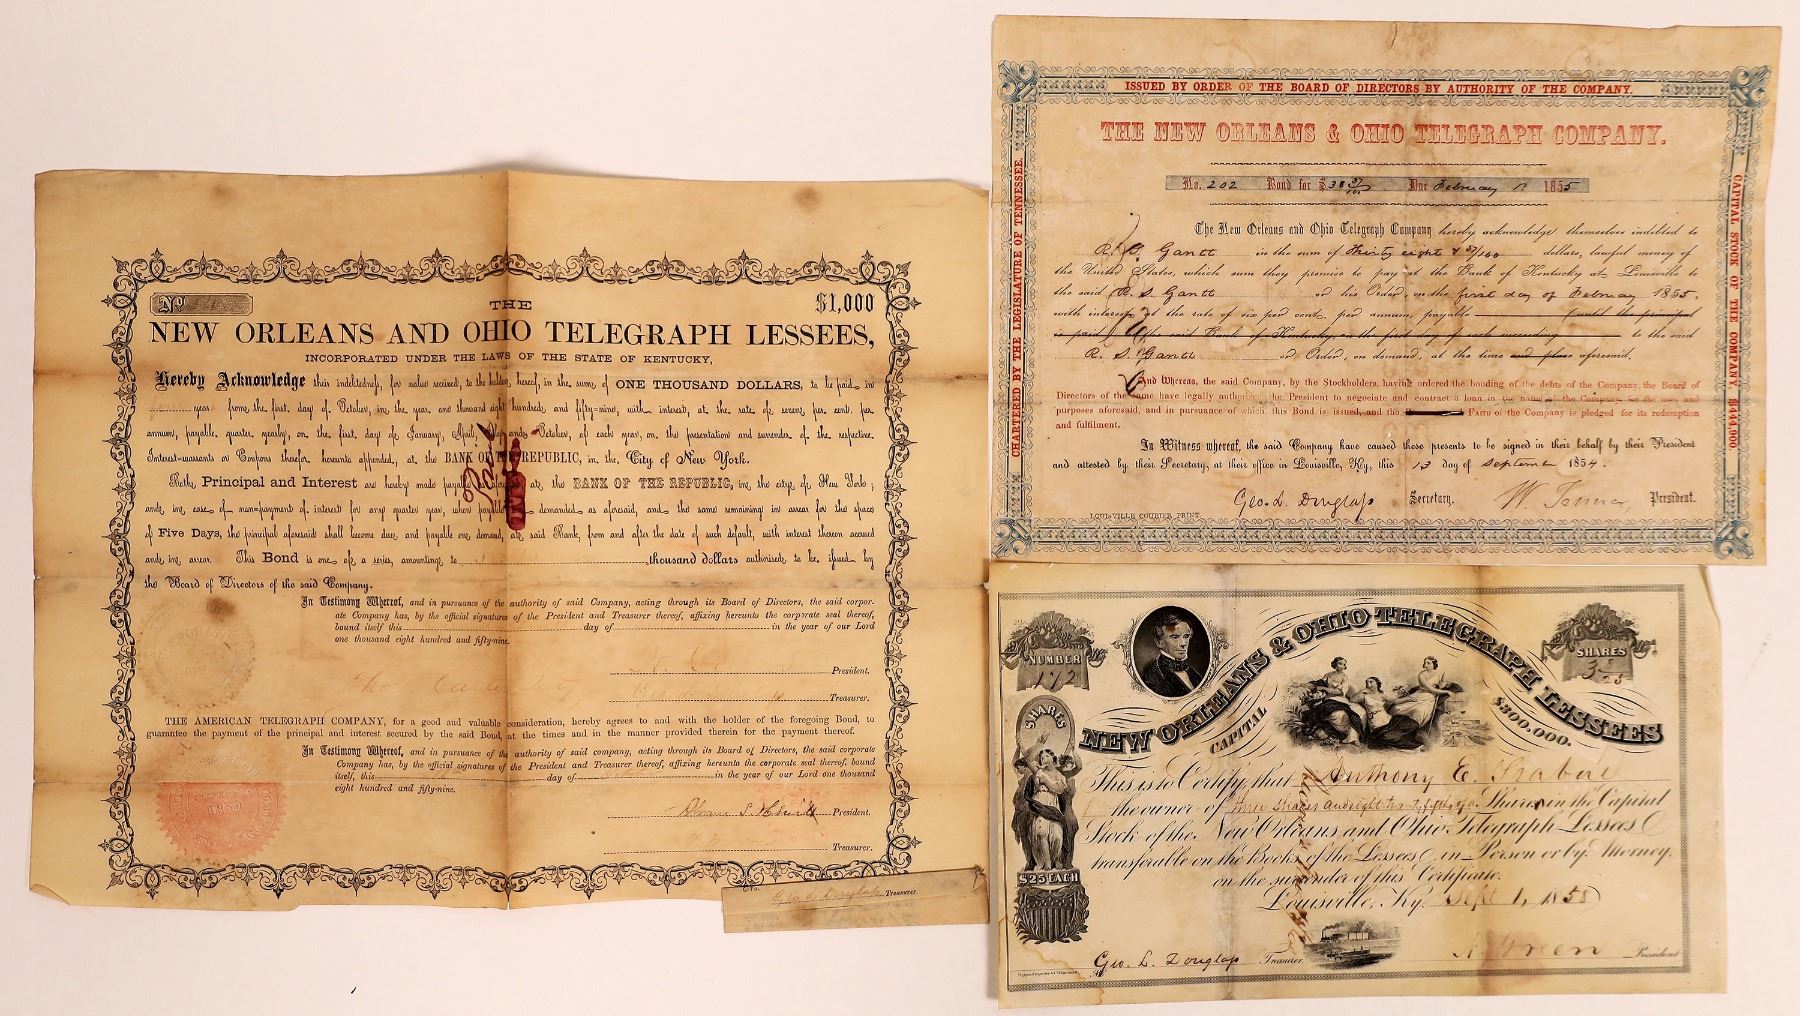 No
THE
$1,000
NEW ORLEANS AND OHIO TELEGRAPH LESSEES,
INCORPORATED UNDER THE LAWS OF THE STATE OF KENTUCKY,
Hereby Acknowledge their indebtedness, for value received, to the holder hereof, in the sum of ONE THOUSAND DOLLARS, to be paid in
years from the first day of October, in the year one thousand eight hundred and fifty-nine, with interest, at the rate of seven per cent. per
annum, payable quarter yearly, on the first day of January, April, July and October, of each year, on the presentation and surrender of the respective
Interest-warrants or Coupons therefor hereunto appended, at the BANK OF THE REPUBLIC, in the City of New York.
Both Principal and Interest are hereby made payable as aforesaid at the BANK OF THE REPUBLIC, in the city of New York;
and in case of non-payment of interest for any quarter year, when payable demanded as aforesaid, and the same remaining in arrear for the space
of Five Days, the principal aforesaid shall become due and payable on demand, at said Bank, from and after the date of such default, with interest thereon accrued
and in arrear. This Bond is one of a series, amounting to thousand dollars authorised to be issued by
the Board of Directors of the said Company.
Paid
In Testimony Whereof, and in pursuance of the authority of said Company, acting through its Board of Directors, the said corpor-
ate Company has, by the official signatures of the President and Treasurer thereof, affixing hereunto the corporate seal thereof,
bound itself this day of in the year of our Lord
one thousand eight hundred and fifty-nine.
President.
Treasurer.
THE AMERICAN TELEGRAPH COMPANY, for a good and valuable consideration, hereby agrees to and with the holder of the foregoing Bond, to
guarantee the payment of the principal and interest secured by the said Bond, at the times and in the manner provided therein for the payment thereof.
In Testimony Whereof, and in pursuance of the authority of said company, acting through its Board of Directors, the said corporate
Company has, by the official signatures of the President and Treasurer thereof, affixing hereunto the corporate seal thereof, bound
itself, this day of in the year of our Lord one thousand
eight hundred and fifty-nine.
President.
Treasurer.
1859
Geo. L. Douglass Treasurer.
ISSUED BY ORDER OF THE BOARD OF DIRECTORS BY AUTHORITY OF THE COMPANY.
CHARTERED BY THE LEGISLATURE OF TENNESSEE.
CAPITAL STOCK OF THE COMPANY $444,900.
THE NEW ORLEANS & OHIO TELEGRAPH COMPANY.
No. 202 Bond for $38 Due February 1 1855
The New Orleans and Ohio Telegraph Company hereby acknowledge themselves indebted to
R. S. Gantt in the sum of Thirty eight & /100 dollars, lawful money of
the United States, which sum they promise to pay at the Bank of Kentucky at Louisville to
the said R. S. Gantt or his Order, on the first day of February 1855,
with interest at the rate of six per cent. per annum, payable (until the principal
is paid) at the said Bank of Kentucky, on the first day of each succeeding to the said
R. S. Gantt or Order, on demand, at the time and place aforesaid.
And Whereas, the said Company, by the Stockholders, having ordered the bonding of the debts of the Company, the Board of
Directors of the same have legally authorized the President to negotiate and contract a loan in the name of the Company, for the uses and
purposes aforesaid, and in pursuance of which this Bond is issued, and the Faith of the Company is pledged for its redemption
and fulfilment.
In Witness whereof, the said Company have caused these presents to be signed in their behalf by their President
and attested by their Secretary, at their office in Louisville, Ky, this 13 day of September 1854.
Geo. L. Douglass Secretary. President.
LOUISVILLE COURIER PRINT.
NUMBER
172
NEW ORLEANS & OHIO TELEGRAPH LESSEES
SHARES
3 8/25
CAPITAL $300.000.
SHARES
$25 EACH
This is to Certify, that Anthony E.
the owner of three shares and eight twenty fifths of a Shares in the Capital
Stock of the New Orleans and Ohio Telegraph Lessees
transferable on the Books of the Lessees in Person or by Attorney
on the surrender of this Certificate.
Louisville, Ky. Sept 1, 1858
Geo. L. Douglass Treasurer. N. Green President